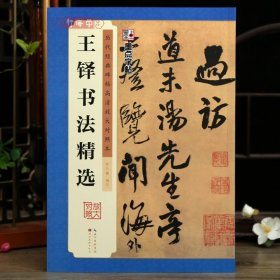 王铎书法精选
历代经典碑帖高清放大对照本
放大
对照
过访
道未汤先生亭
登览闻海外